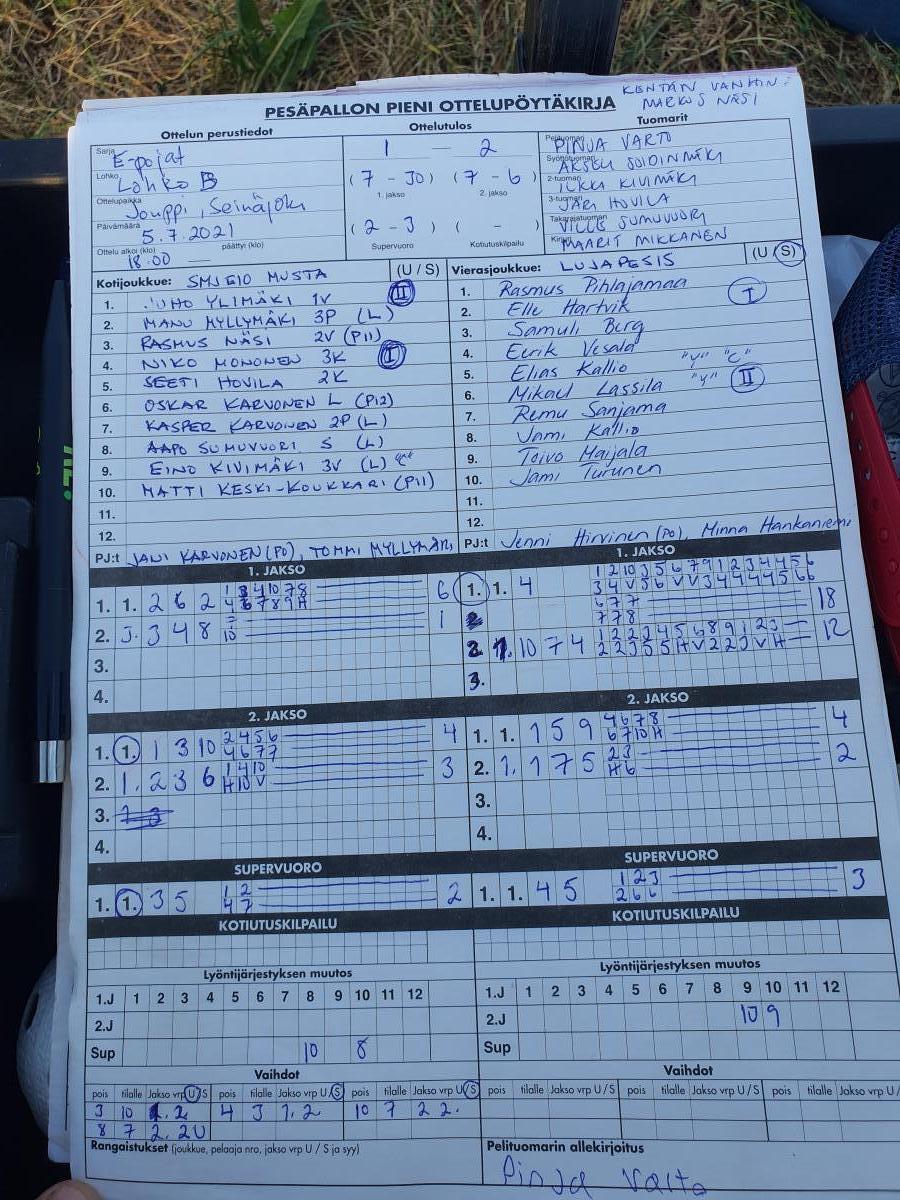 KENTÄN VANHIN:
MARKUS NÄSI
PESÄPALLON PIENI OTTELUPÖYTÄKIRJA
Ottelun perustiedot
Sarja E-pojat
Lohko Lohko B
Ottelupaikka Jouppi, Seinäjoki
Päivämäärä 5.7.2021
Ottelu alkoi (klo) päättyi (klo)
18.00 —
Ottelutulos
1 — 2
(7 - 30) (7 - 6)
1. jakso 2. jakso
(2 - 3) ( - )
Supervuoro Kotiutuskilpailu
Tuomarit
Pelituomari PINJA VARTO
Syöttötuomari AKSELI SOIDINMÄKI
2-tuomari ILKKA KIVIMÄKI
3-tuomari JARI HOVILA
Takarajatuomari VILLE SUMUVUORI
Kirjuri MAARIT MIKKANEN
Kotijoukkue: SMJ E10 MUSTA (U / S)
1. JUHO YLIMÄKI 1V II
2. MANU MYLLYMÄKI 3P (L)
3. RASMUS NÄSI 2V (P11)
4. NIKO MONONEN 3K I
5. SEETI HOVILA 2K
6. OSKAR KARVONEN L (P12)
7. KASPER KARVONEN 2P (L)
8. AAPO SUMUVUORI S (L)
9. EINO KIVIMÄKI 3V (L) "C"
10. MATTI KESKI-KOUKKARI (P11)
11.
12.
PJ:t JANI KARVONEN (PO), TOMMI MYLLYMÄKI
Vierasjoukkue: LUJAPESIS (U / S)
1. Rasmus Pihlajamaa I
2. Elle Hartvik
3. Samuli Berg
4. Eerik Vesala
5. Elias Kallio "V" "C"
6. Mikael Lassila "V" II
7. Remu Sanjama
8. Jami Kallio
9. Toivo Maijala
10. Jami Turunen
11.
12.
PJ:t Jenni Hirvinen (PO), Minna Hankaniemi
1. JAKSO
1. 1. 2 6 2 6
2. 3. 3 4 8 10 1
3.
4.
1. JAKSO
1. 1. 4 18
2. 1. 10 7 4 12
3.
2. JAKSO
1. 1. 1 3 10 2 4 5 6 4
4 6 7 7
2. 1. 2 3 6 1 4 10 3
H 10 V
3.
4.
2. JAKSO
1. 1. 1 5 9 4 6 7 8 4
6 7 10 H
2. 1. 1 7 5 2 3 2
H 6
3.
4.
SUPERVUORO
1. 1. 3 5 1 2 2
4 7
SUPERVUORO
1. 1. 4 5 1 2 3 3
2 6 6
KOTIUTUSKILPAILU
KOTIUTUSKILPAILU
Lyöntijärjestyksen muutos
1.J 1 2 3 4 5 6 7 8 9 10 11 12
2.J
Sup 10 8
Lyöntijärjestyksen muutos
1.J 1 2 3 4 5 6 7 8 9 10 11 12
2.J 10 9
Sup
Vaihdot
pois tilalle Jakso vrp U/S pois tilalle Jakso vrp U/S pois tilalle Jakso vrp U/S
3 10 1.2 4 3 1.2 10 7 2 2.
8 7 2. 2U
Vaihdot
pois tilalle Jakso vrp U / S pois tilalle Jakso vrp U / S pois tilalle Jakso vrp U /
Rangaistukset (joukkue, pelaaja nro, jakso vrp U / S ja syy)
Pelituomarin allekirjoitus
Pinja Varto